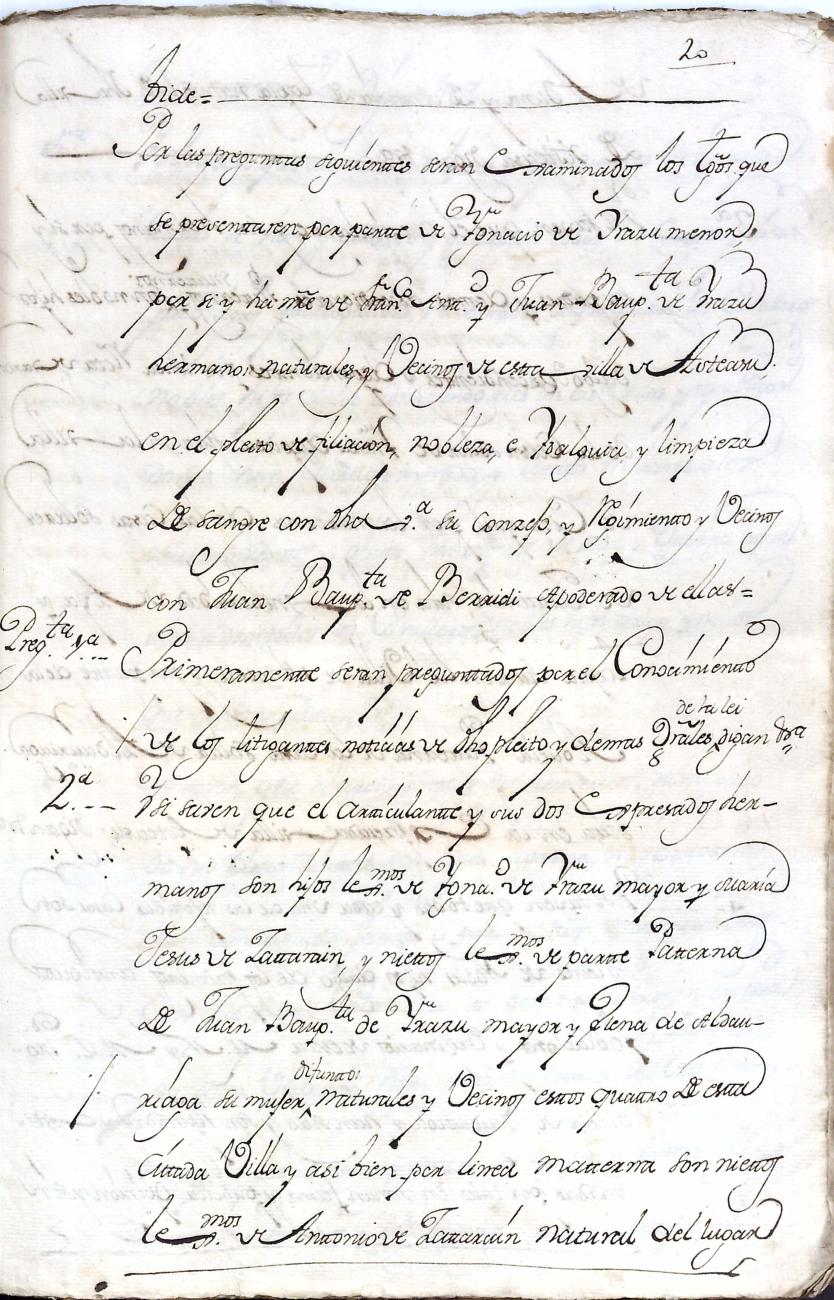 20
bide=
Por las preguntas siguientes seran examinados los tgos. que
se presentaren por partte de Ygnacio de Yrazu menor,
por si y ha nre de Fran.co Ant.o y Juan Baup.ta de Yrazu
hermanos naturales, y Vecinos de estta villa de Asteasu.
en el pleito de filiación, nobleza, e Ydalguia, y limpieza
de sangre con dha v.a su Conzejo, y Rejimientto y Vecinos
con Juan Baup.ta de Berridi Apoderado de ellas=
Preg.ta 1.a Primeramentte seran preguntados por el Conocimientto
de los litigantes noticias de dho pleito y demas Grales de la lei digan
2.a Ysi saven que el articulantte y sus dos expresados her-
manos son hijos le.mos de Ygna.o de Yrazu mayor y Maria
Jesus de Lattarain, y niettos le.mos de partte Patterna
de Juan Baup.ta de Yrazu mayor y Elena de Aldau-
riaga su mujer difuntos naturales y Vecinos esttos quattro de estta
Cittada Villa y asi bien por linea matterna son niettos
le.mos de Antonio de Lattarain natural del lugar